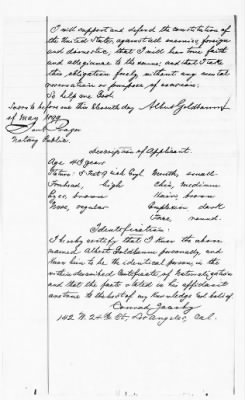 I will support and defend the constitution of
the United States, against all enemies, foreign
and domestic, that I will bear true faith
and allegiance to the same; and that I take
this obligation freely without any mental
reservation or purpose of evasion:
So help me God.
Sworn to before me this eleventh day Albert Goldbaum
of May 1899
Notary Public.
description of Applicant.
Age 43 years
Stature: 5 Feet 9 inch Engl Mouth, small
Forehead, high Chin, medium
Eyes, brown Hair brown
Nose, regular Complexion dark
Face, round.
Identification:
I hereby certify that I know the above
named Albert Goldbaum personally, and
know him to be the identical person in the
within described Certificate of Naturalization
and that the facts stated in his affidavit
are true to the best of my Knowledge and belief.
Conrad
142 W. 24th St, Los Angeles, Cal.